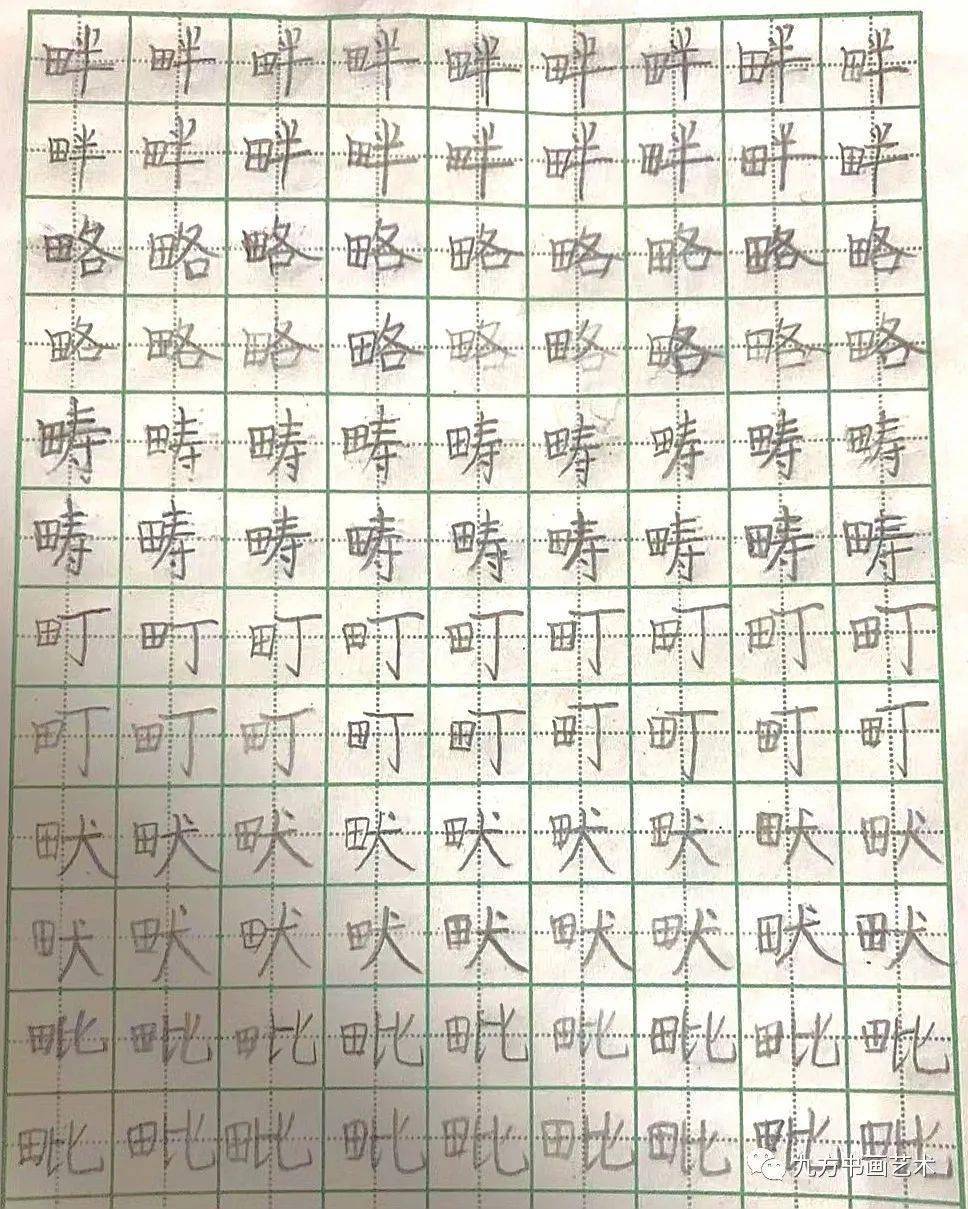 畔畔畔畔畔畔畔畔畔
畔畔畔畔畔畔畔畔畔
略略略略略略略略略
略略略略略略略略略
畴畴畴畴畴畴畴畴畴
畴畴畴畴畴畴畴畴畴
町町町町町町町町町
町町町町町町町町町
畎畎畎畎畎畎畎畎畎
畎畎畎畎畎畎畎畎畎
毗毗毗毗毗毗毗毗毗
毗毗毗毗毗毗毗毗毗
九方书画艺术